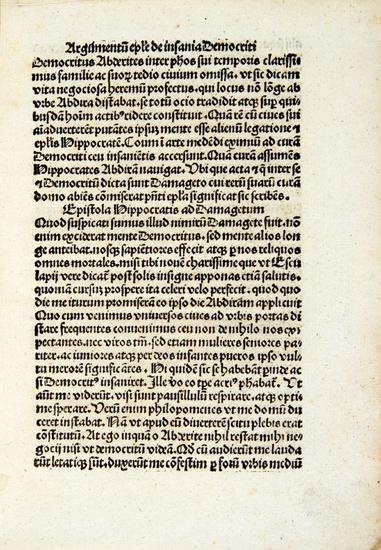 Argumentū eple de insania Democriti
Democritus Abderites inter phos sui temporis clarissi
mus familie ac suoꝝ tedio ciuium omissa. vt sic dicam
vita negociosa heremū profectus. qui locus nō lōge ab
vrbe Abdira distabat. se totū ocio tradidit atqꝫ suꝑ qui
busdā hoīm actibꝰ ridere constituit. Quā rē cū ciues sui
aīaduerterēt putātes ipsuꝫ mente esse alienū legatione ⁊
eplis Hippocratē. Coum ī arte medēdi eximiū ad curā
Democriti ceu insaniētis accersunt. Quā curā assumēs
Hippocrates Abdirā nauigat. Vbi que acta ⁊ q̄ inter se
⁊ Democritū dicta sunt Damageto cui rerū suarū curā
domo abiēs cōmiserat pn̄ti epla significat sic scribēs.
Epistola Hippocratis ad Damagetum
Quod suspicati sumus illud nimirū Damagete fuit. nō
enim exciderat mente Democritus. sed mente alios lon
ge anteibat. nosqꝫ sapiētiores effecit atqꝫ ꝑ nos reliquos
omnes mortales. misi tibi nouē charissime que vt Escu
lapij vere dicāt post solis insigne apponas etiā salutis.
quoniā cursuꝫ prospere ita celeri velo perfecit. quod quo
die me iturum promiseram eo ipso die Abdiram applicuit
Quo cum venimus vniuersos ciues ad vrbis portas di
stare frequentes conuenimus ceu non de nihilo nos ex
pectantes. nec viros tm̄. sed etiam mulieres seniores pa
riter. ac iuniores atqꝫ per deos infantes pueros ipso vul
tu merorē significātes. Hi quidē sic se habebāt ꝑinde ac
si Democritꝰ insaniret. Ille v̄o eo tꝑe acriꝰ phabāt. Vt
aūt me viderūt. visi sunt pausillulū respirare. atqꝫ opti
me sperare. Verū enim philopomenes vt me domū du
ceret instabat. Nā vt apud eū diuerterē scitu plebis erat
cōstitutū. At ego inquā o Abderite nihil restat mihi ne
gocij nisi vt democritū videā. Qd̄ cū audierūt me lauda
rūt letatiqꝫ sūt. duxerūt me cōfestim ꝑ forū vrbis mediū